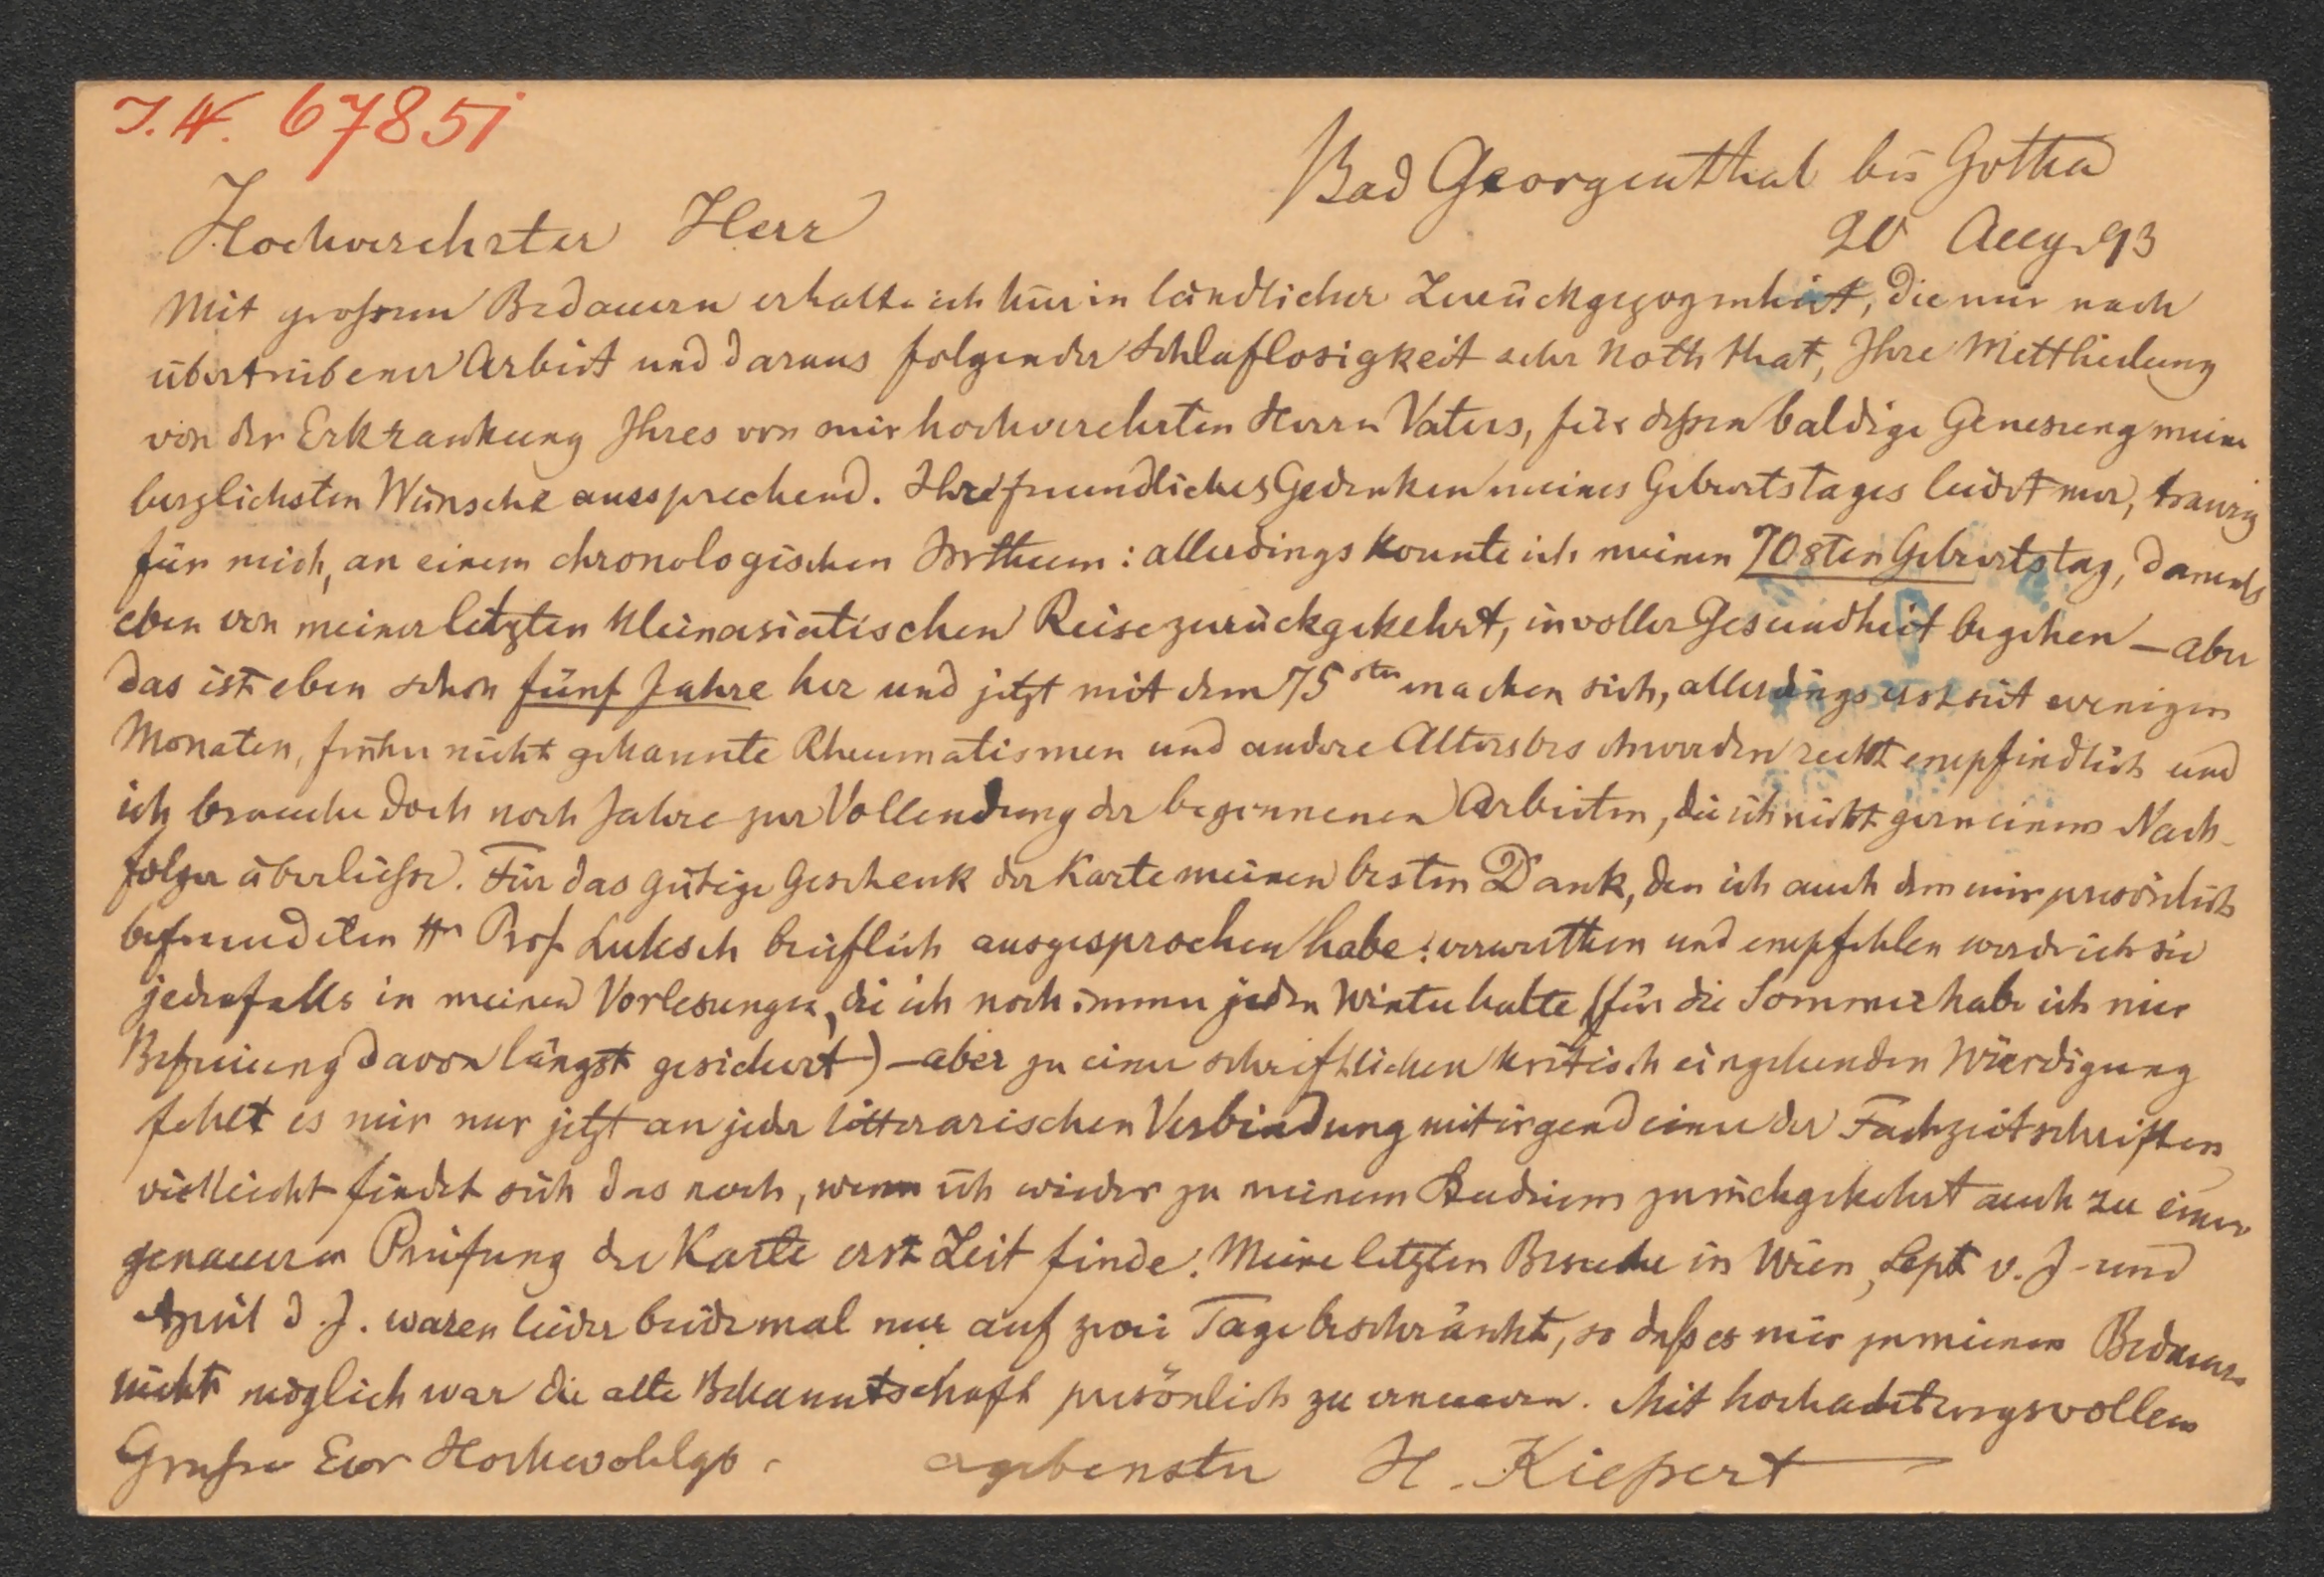 I.N. 67851
Bad Georgenthal bei Gotha
20 Aug. 93
Hochverehrter Herr
Mit grossem Bedauern erhalte ich hier in ländlicher Zurückgezogenheit, die mir nach
übertriebener Arbeit und daraus folgender Schlaflosigkeit sehr noth that, Ihre Mittheilung
von der Erkrankung Ihres von mir hochverehrten Herrn Vaters, für dessen baldige Genesung meine
herzlichsten Wünsche aussprechend. Ihr freundliches Gedenken meines Geburtstages leidet nur, traurig
für mich, an einem chronologischen Irrthum: allerdings konnte ich meinen 70sten Geburtstag, damals
eben von meiner letzten kleinasiatischen Reise zurückgekehrt, in voller Gesundheit begehen – aber
das ist eben schon fünf Jahre her und jetzt mit dem 75sten machen sich, allerdings erst seit wenigen
Monaten, früher nicht gekannte Rheumatismen und andere Altersbeschwerden recht empfindlich und
ich brauche doch noch Jahre zur Vollendung der begonnenen Arbeiten, die ich nicht gern einem Nach-
folger überliesse. Für das gütige Geschenk der Karte meinen besten Dank, den ich auch dem mir persönlich
befreundeten Hn Prof. Luksch brieflich ausgesprochen habe: verwerthen und empfehlen werde ich sie
jedenfalls in meinen Vorlesungen, die ich noch immer jeden Winter halte (für die Sommer habe ich mir
Befreiung davon längst gesichert) – aber zu einer schriftlichen kritisch eingehenden Würdigung
fehlt es mir nur jetzt an jeder litterarischen Verbindung mit irgend einer der Fachzeitschriften
vielleicht findet sich das noch, wenn ich wieder zu meinem Studium zurückgekehrt auch zu einer
genaueren Prüfung der Karte erst Zeit finde. Meine letzten Besuche in Wien, Sept v. J. und
April d. J. waren leider beidemal nur auf zwei Tage beschränkt, so dass es mir zu meinem Bedauern
nicht möglich war die alte Bekanntschaft persönlich zu erneuern. Mit hochachtungsvollem
Grusse Euer Hochwohlgb. ergebenster H. Kiepert